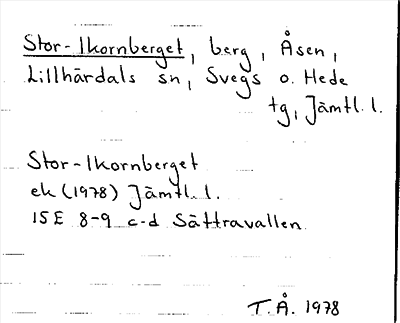 Stor-Ikornberget, berg, Åsen,
Lillhärdals sn, Svegs o. Hede
tg, Jämtl. l.
Stor-Ikornberget
ek (1978) Jämtl. l.
15E 8-9 c-d Sättravallen
T.Å. 1978